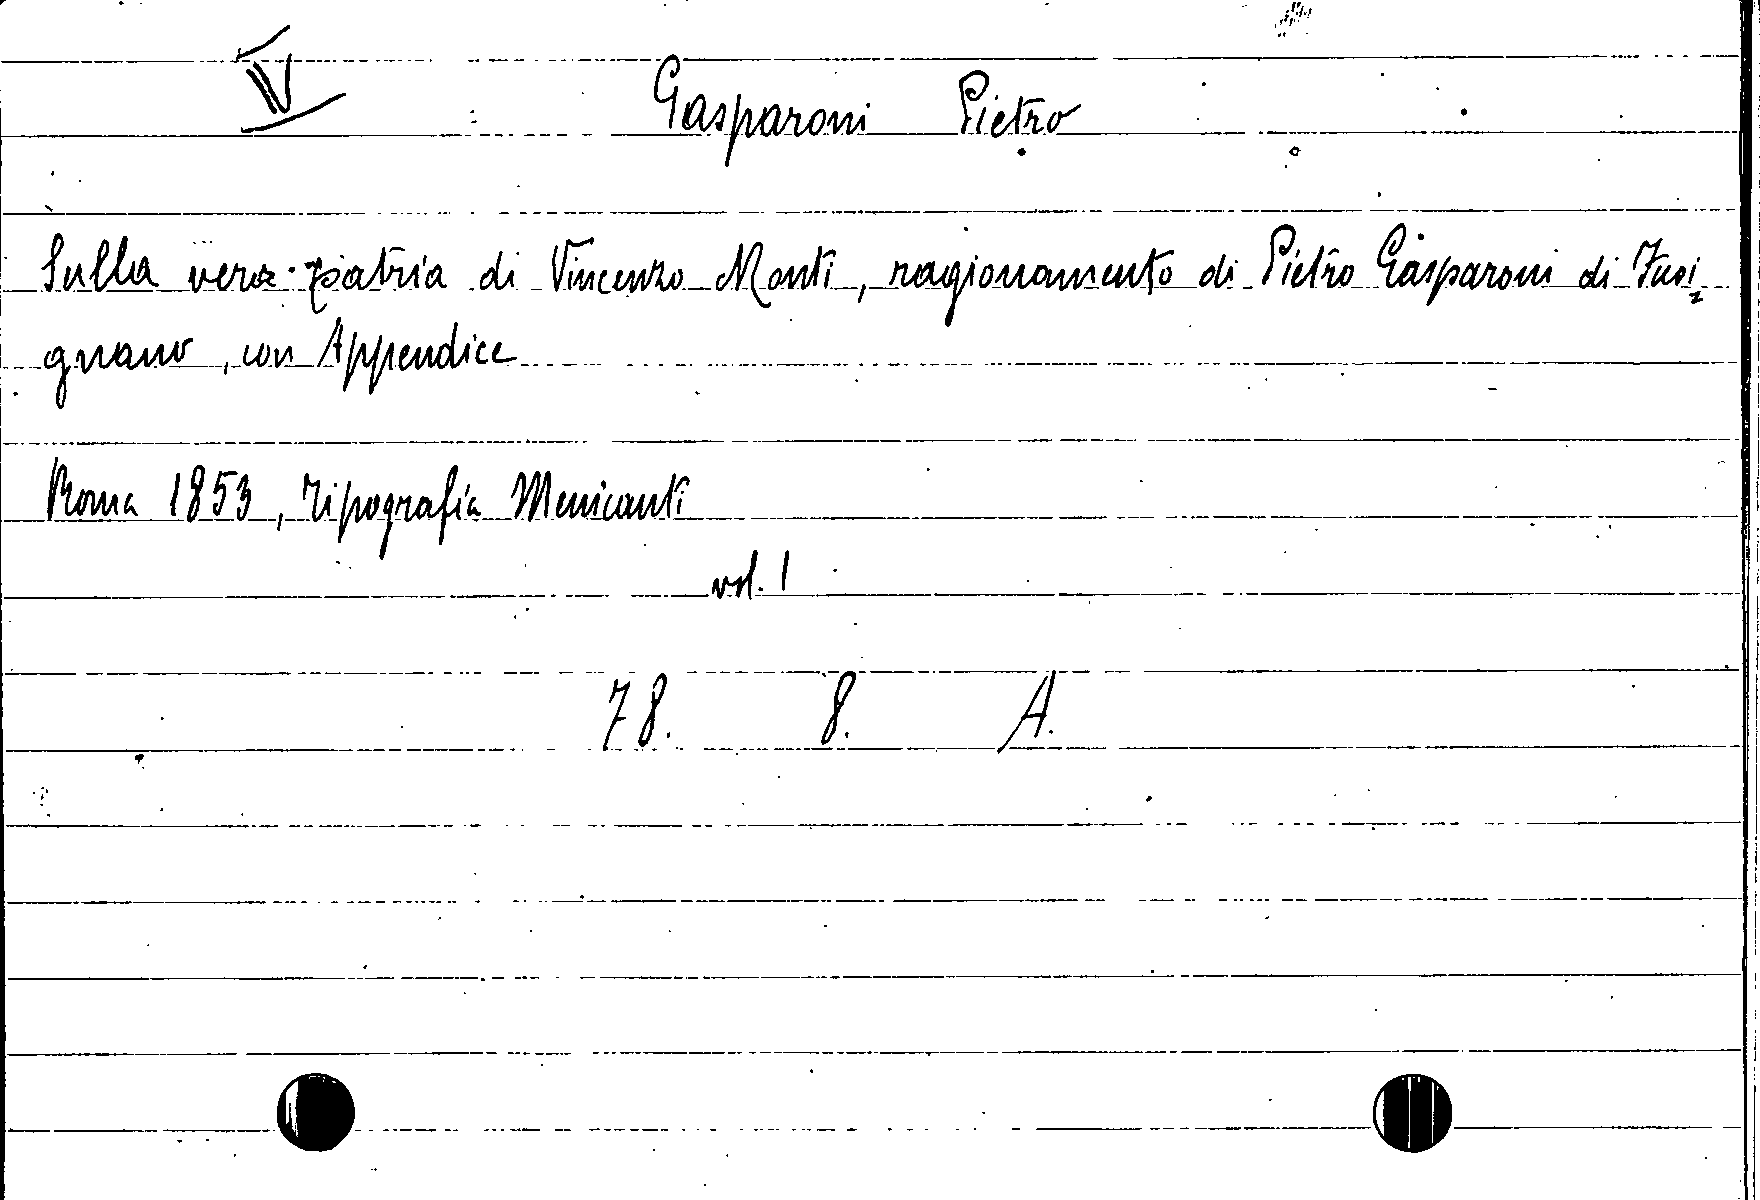 V Gasparoni Pietro
Sulla vera patria di Vincenzo Monti, ragionamento di Pietro Gasparoni di Fusi=
gnano, con Appendice
Roma 1853, Tipografia Menicanti
vol. 1
78. 8. A.